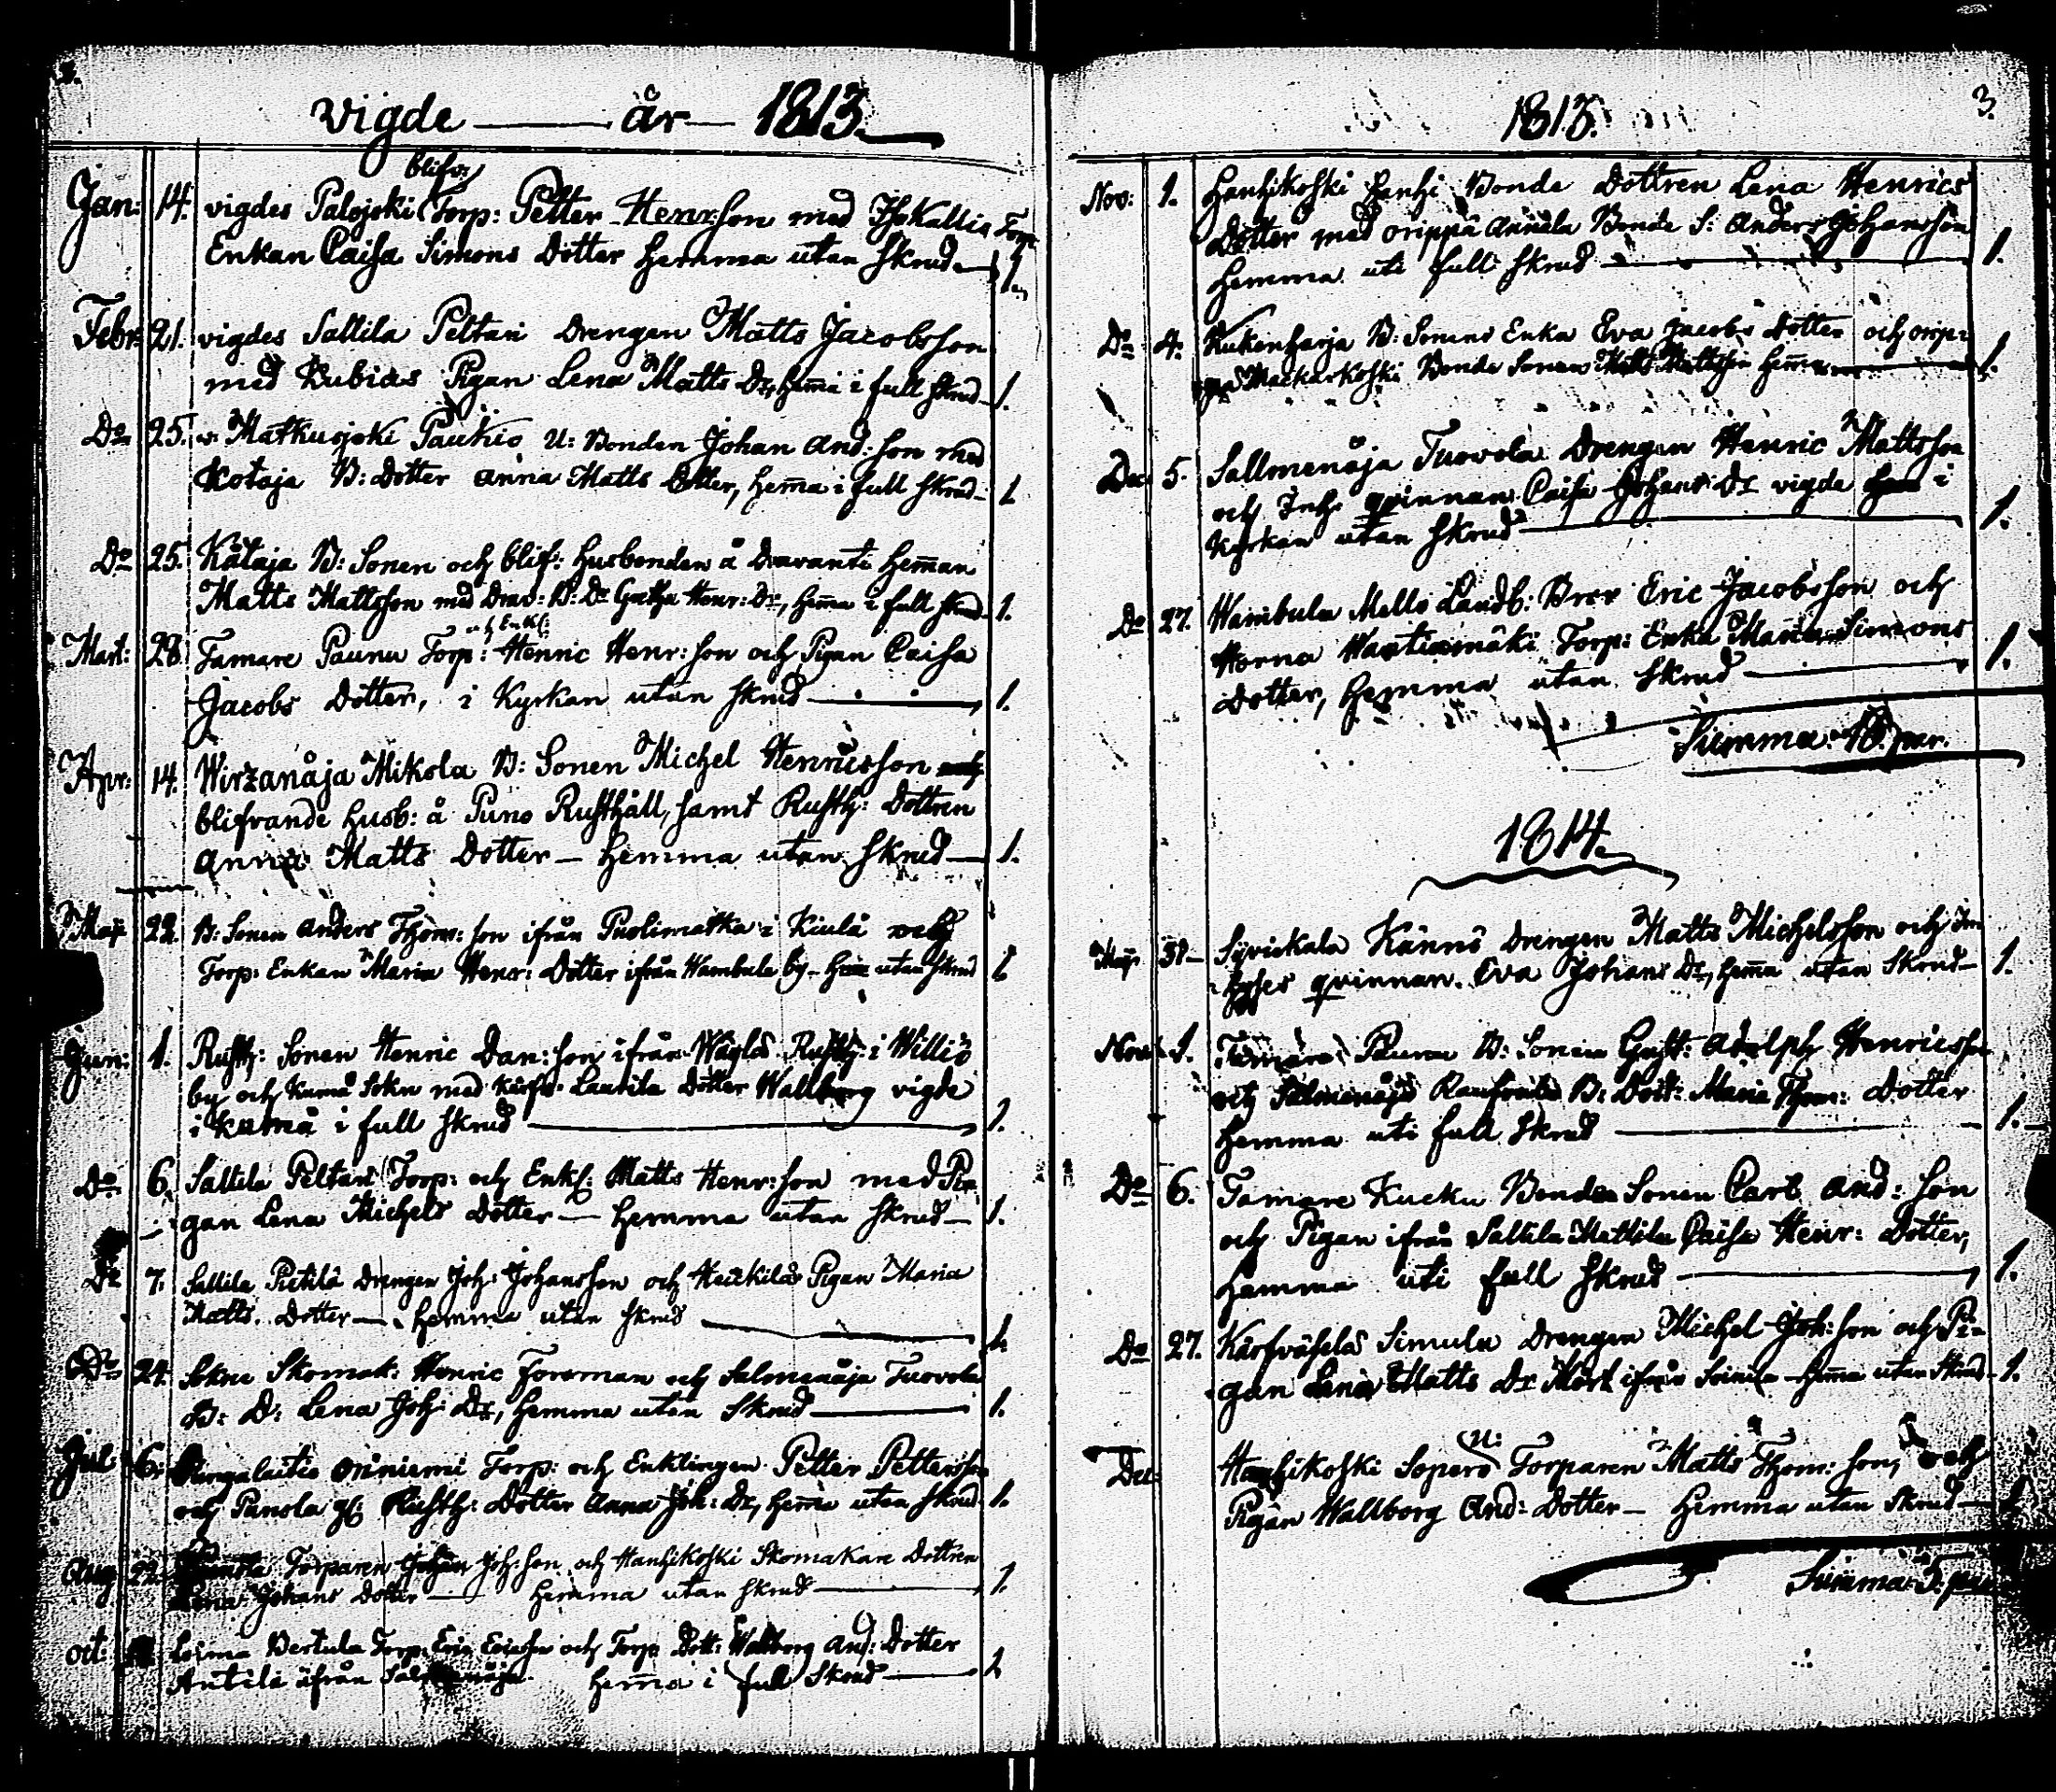 2.
vigde år 1813.
blifv:
Jan: 14. vigdes Palojoki Torp: Petter Henr:son med Isokallio Torp
Enkan Caisa Simons Dotter hemma utan Skrud 1.
Febr: 21. vigdes Sallila Peltari Drengen Matts Jacobsson
med Kubias Pigan Lena Matts Dr, hema i full Skrud 1.
Do 25. v. Matkusjoki Paukio U: Bonden Johan And:son med
Kotaja B: Dotter Anna Matts Dotter, hema i full Skrud 1
Do 25. Kätaja B: Sonen och blif: husbonden å Dravanti heman
Matts Mattsson med Drav: B: Dr Greta Henr: Dr, hema i full Skrud 1.
och Enkl:
Mart: 28. Tamare Paunu Torp: Henric Henr:son och Pigan Caisa
Jacobs Dotter, i Kyrkan utan Skrud 1.
Apr: 14. Wirzanåja Mikola B: Sonen Michel Henricsson
blifvande husb: å Puno Rusthåll, samt Rusth: Dottren
Anna Matts Dotter — hemma utan Skrud 1.
Maji 22. B: Sonen Anders Thom:son ifrån Puolimatka i Kiulå
Torp: Enkan Maria Henr: Dotter ifrån Wambula by — utan Skrud 1
Jun: 1. Rusth: Sonen Henric Dan:son ifrån Rusth: i Williö
by och Kumå Sokn med Laurila Dotter Wallborg vigde
i Kumå i full Skrud 1.
Do 6. Sallila Peltari Torp: och Enkl: Matts Henr:son med Pi
gan Lena Michels Dotter — hemma utan Skrud 1.
Do 7. Sallila Pietilä Drengen Joh: Johansson och Heickilas Pigan Maria
Matts Dotter — hemma utan Skrud 1.
Do 24. Sokne Skomak: Henric Forsman och Salmenåja Tuovola
B: D: Lena Joh: Dr, hemma utan Skrud 1.
Jul 6. Torp: och Enklingen Petter Pettersson
och Punola Rusth: Dotter Anna Joh: Dr, hema utan Skrud 1.
Aug 22. Torparen Johan Joh:son och Hanhikoski Skomakare Dottren
Lena Johans Dotter — hemma utan Skrud 1.
oct: Loima Bertula Torp: Eric Ericsson och Torp Dott: Walborg And: Dotter
Antila ifrån hema i full Skrud 1
1813.
3.
Nov: 1. Hanhikoski Hanhi Bonde Dottren Lena Henrics
Dotter med oripää Annala Bonde S: Anders Johansson
hemma uti full Skrud 1.
Do 4. Kukenharja B: Sonens Enka Eva Jacobs Dotter och orip:
Mackarkoski Bonde Sonen Matts Mattsson 1.
Dec 5. Sallmenåja Tuovola Drengen Henric Mattsson
och Inh: qvinnan Caisa Johans Dr vigde i
Kyrkan utan Skrud 1.
Do 27. Wambula Mello Landb: Bror Eric Jacobsson och
Horna Wartiamäki Torp: Enka Maria Simons
Dotter, hemma utan Skrud 1.
Summa par.
1814.
Maji 31 Syrickala Kännö Drengen Matts Michelsson och In
hyses qvinnan Eva Johans Dr, hema utan Skrud 1.
Nov 1. Tamare Paunu B: Sonen Gust: Adolph Henricsson
och Salmenåja B: Dott: Maria Thom: Dotter
hemma uti full Skrud 1.
Do 6. Tamare Kucku Bonde Sonen Carl And:son
och Pigan ifrån Sallila Mattila Caisa Henr: Dotter,
hemma uti full Skrud 1.
Do 27. Kårfväselä Simula Drengen Michel Joh:son och Pi-
gan Lena Matts Dr ifrån Soinila hema utan Skrud 1.
U:
Dec: Hanhikoski Sopero Torparen Matts Thom:son, och
Pigan Wallborg And: Dotter — hemma utan Skrud
Summa 5. par